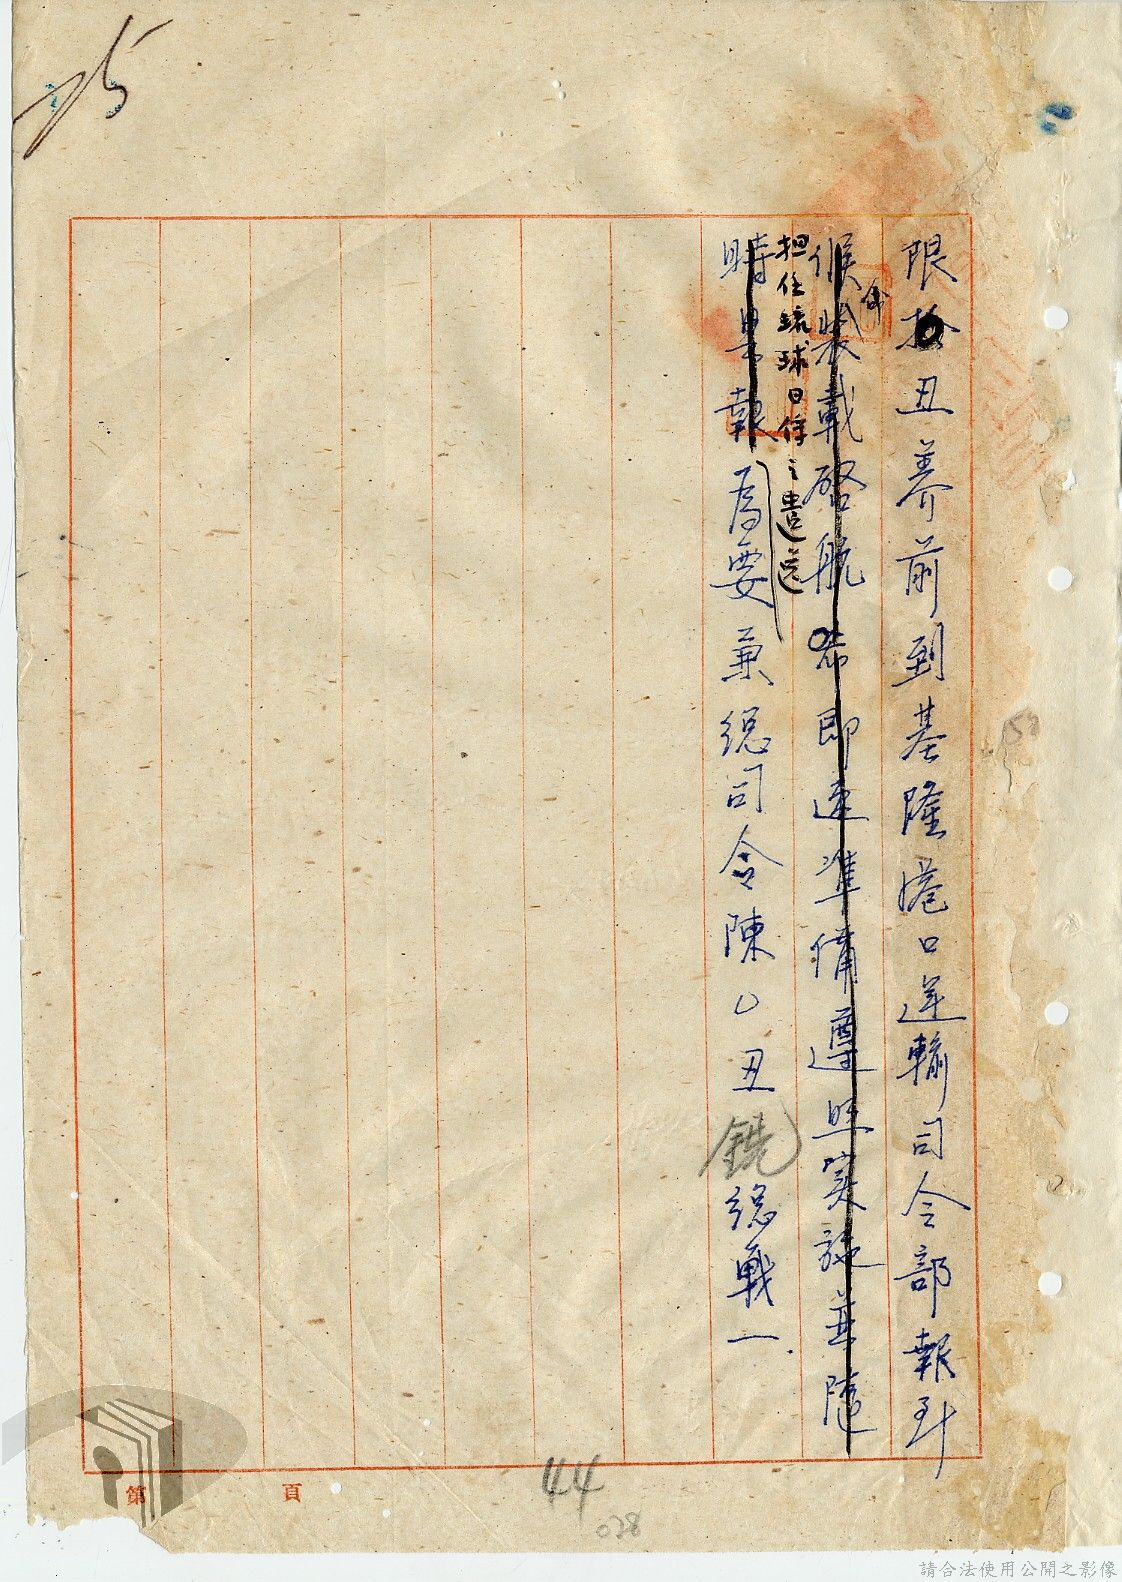 限於丑養前到基隆港口運輸司令部報到
候裝載啓航希即速準備遵照實施並隨
担任琉球日俘之遣送
時具報為要兼總司令陳○丑銑總戰一.
第 頁
44
028
請合法使用公開之影像